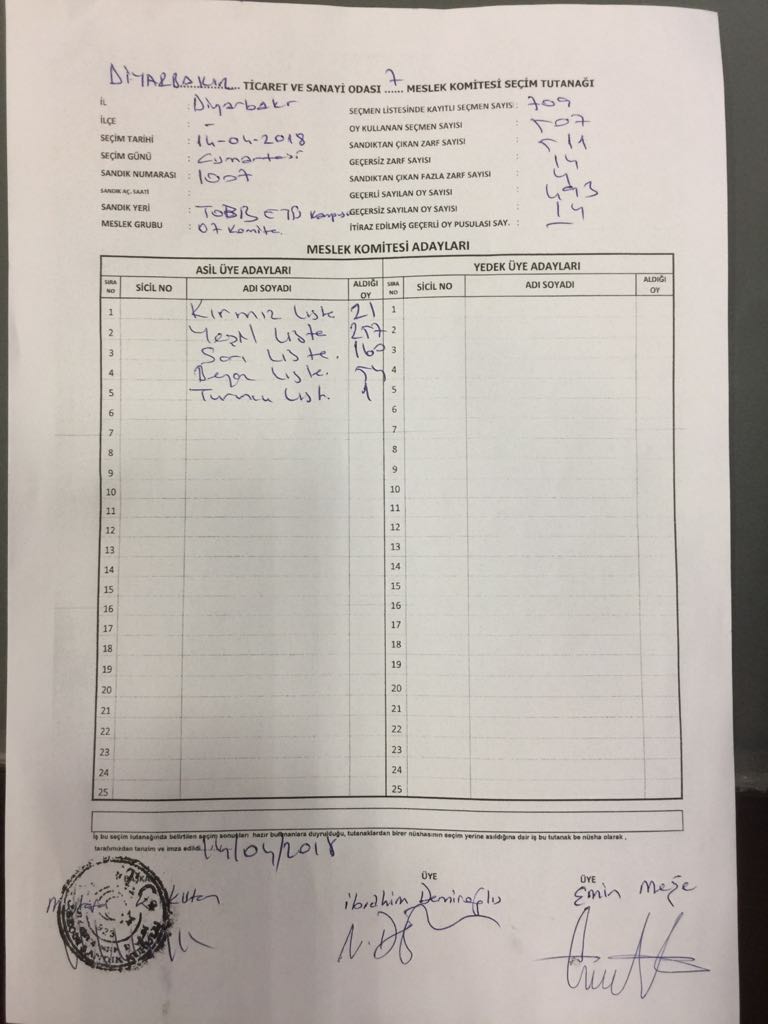 DİYARBAKIR TİCARET VE SANAYİ ODASI 7 MESLEK KOMİTESİ SEÇİM TUTANAĞI
İL : Diyarbakr
İLÇE : -
SEÇİM TARİHİ : 14-04-2018
SEÇİM GÜNÜ : Cumartesi
SANDIK NUMARASI : 1007
SANDIK AÇ. SAATİ :
SANDIK YERİ : TOBB ETB
MESLEK GRUBU : 07 Komite.
SEÇMEN LİSTESİNDE KAYITLI SEÇMEN SAYISI : 709
OY KULLANAN SEÇMEN SAYISI : 507
SANDIKTAN ÇIKAN ZARF SAYISI : 511
GEÇERSİZ ZARF SAYISI : 14
SANDIKTAN ÇIKAN FAZLA ZARF SAYISI : 4
GEÇERLİ SAYILAN OY SAYISI : 493
GEÇERSİZ SAYILAN OY SAYISI : 14
İTİRAZ EDİLMİŞ GEÇERLİ OY PUSULASI SAY. : —
MESLEK KOMİTESİ ADAYLARI
ASİL ÜYE ADAYLARI YEDEK ÜYE ADAYLARI
SIRA NO SİCİL NO ADI SOYADI ALDIĞI OY SIRA NO SİCİL NO ADI SOYADI ALDIĞI OY
1 Kırmız Liste 21 1
2 Yeşil Liste 257 2
3 Sarı Liste. 160 3
4 Beyaz Liste. 54 4
5 Turuncu List. 1 5
6 6
7 7
8 8
9 9
10 10
11 11
12 12
13 13
14 14
15 15
16 16
17 17
18 18
19 19
20 20
21 21
22 22
23 23
24 24
25 25
İş bu seçim tutanağında belirtilen seçim sonuçları hazır bulunanlara duyrulduğu, tutanaklardan birer nüshasının seçim yerine asıldığına dair iş bu tutanak be nüsha olarak ,
tarafımızdan tanzim ve imza edildi. 14/04/2018
BAŞKAN ÜYE ÜYE
Kutan ibrahim Demiroğlu Emin Meşe